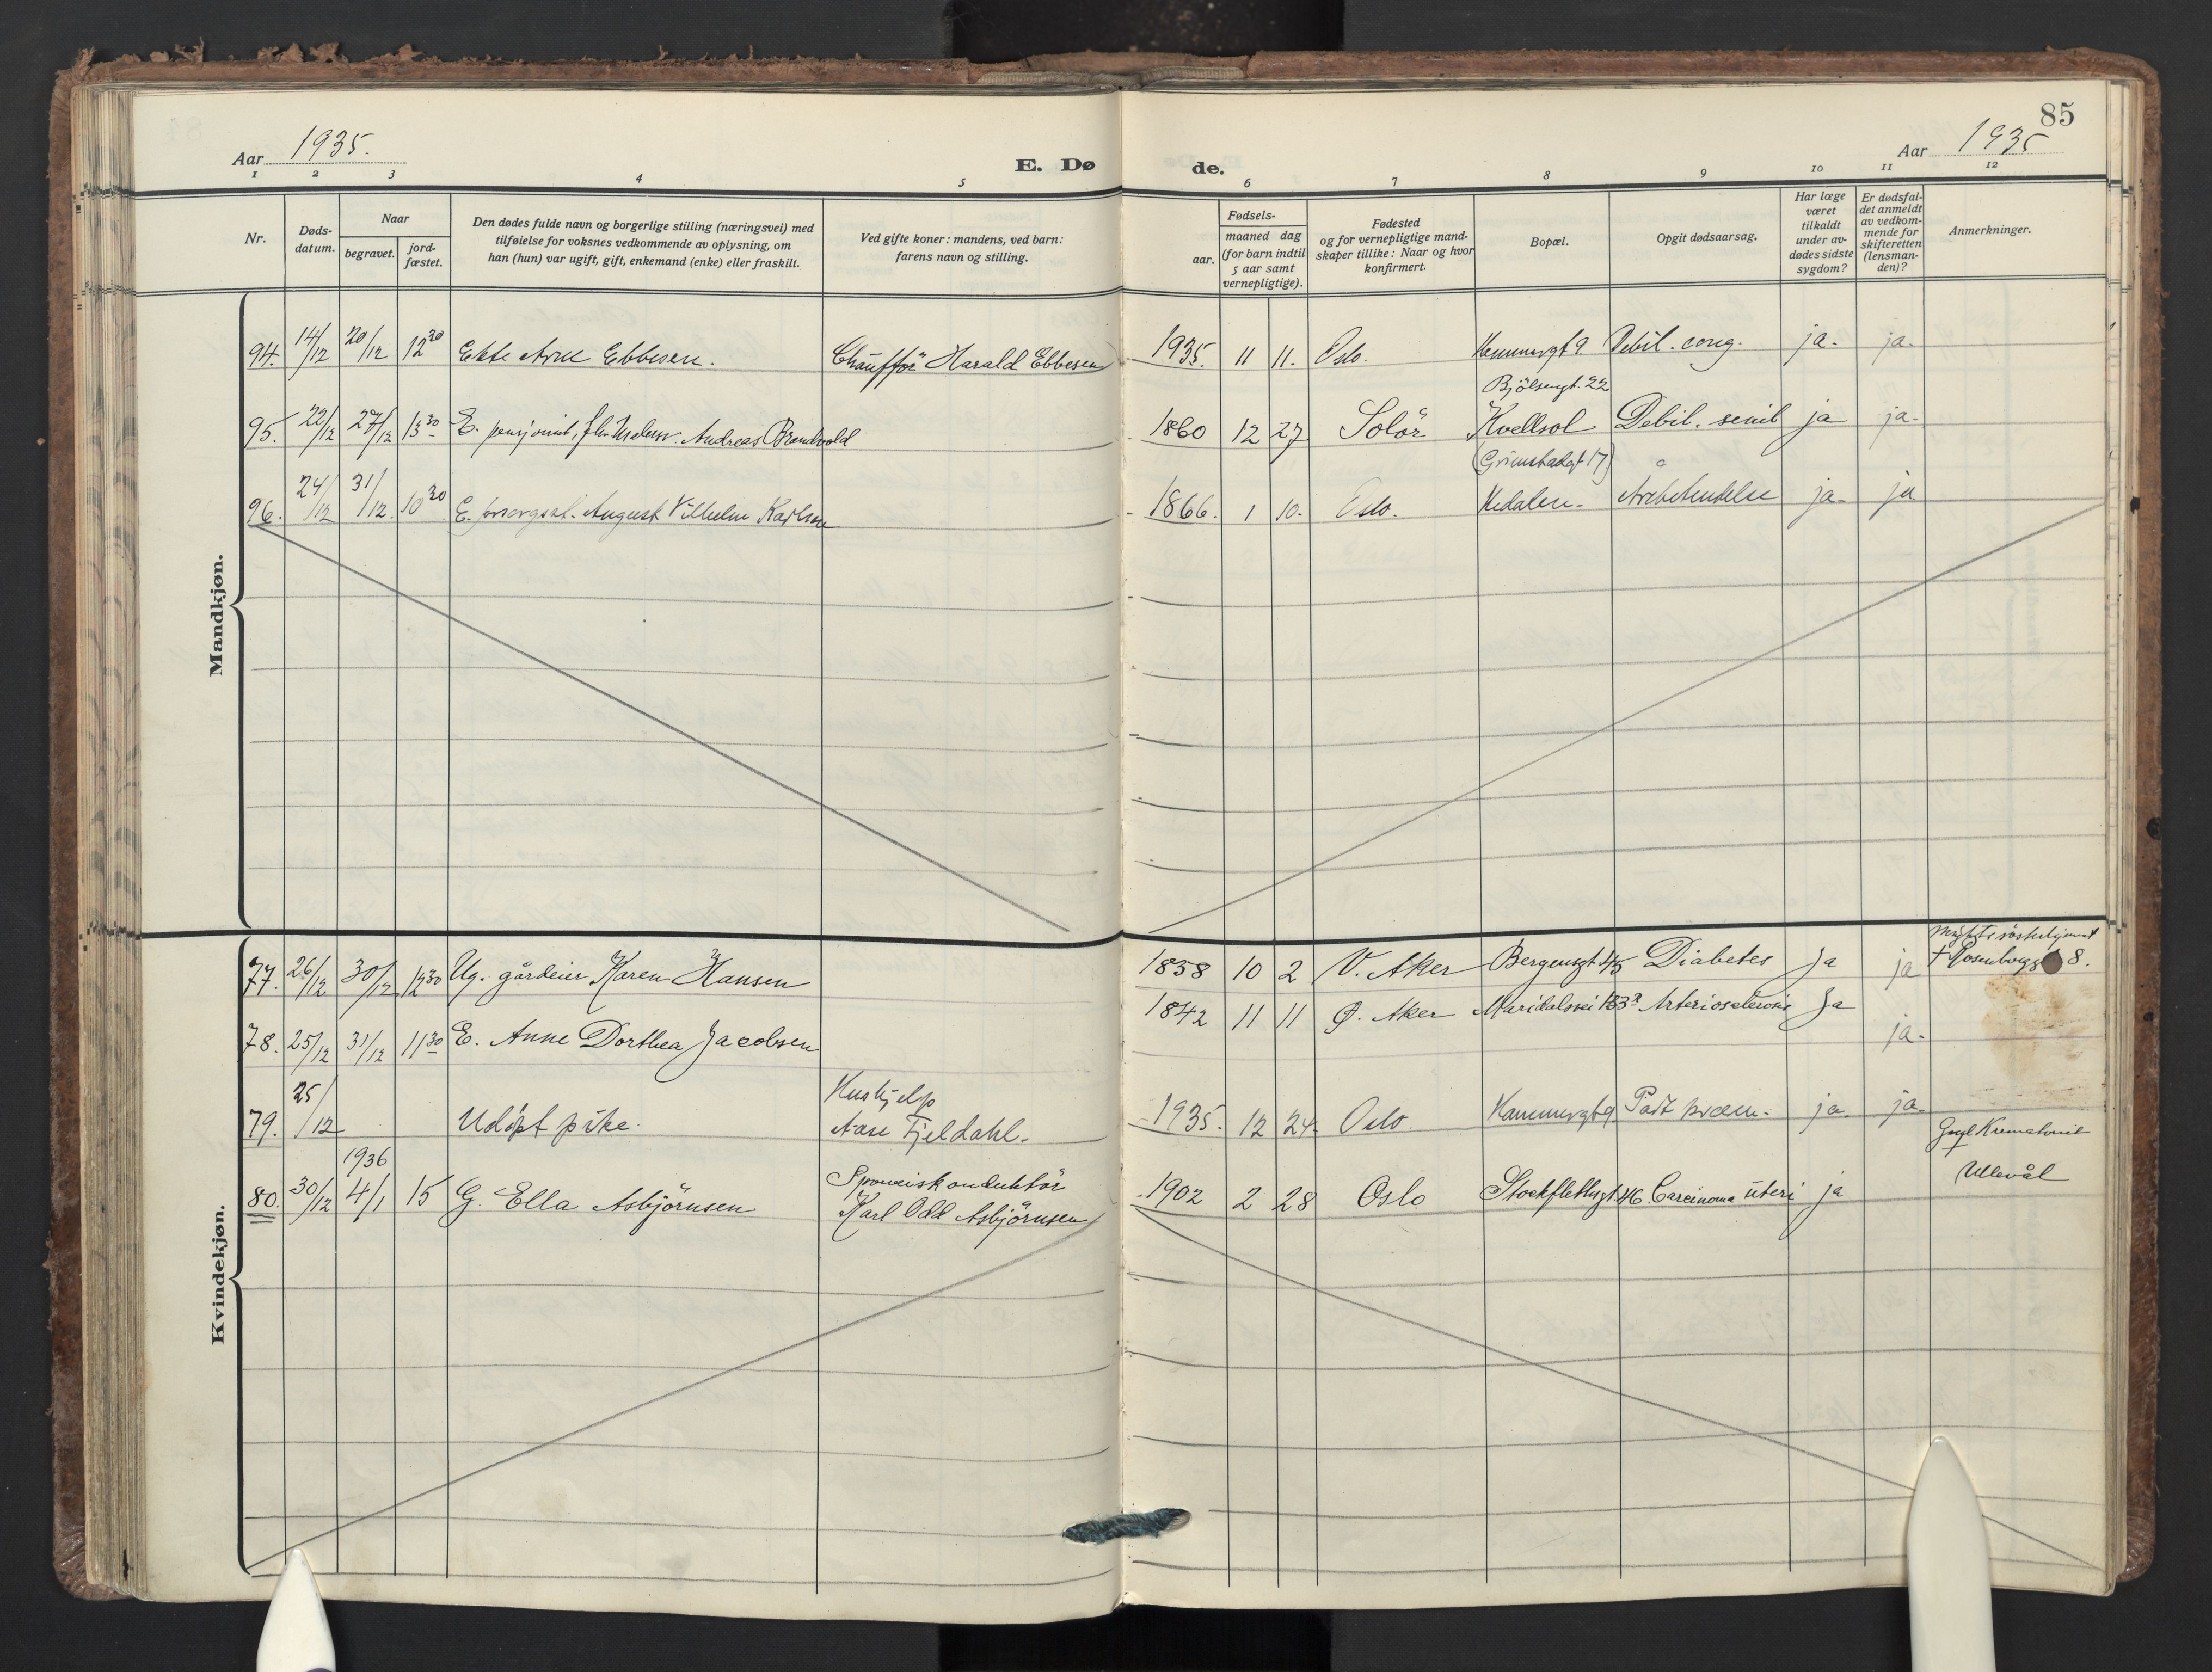 85
Aar 1935. E. Døde. Aar 1935
1 2 3 4 5 6 7 8 9 10 11 12
Nr.
Døds-
datum.
Naar
begravet.
jord-
fæstet.
Den dødes fulde navn og borgerlige stilling (næringsvei) med
tilføielse for voksnes vedkommende av oplysning, om
han (hun) var ugift, gift, enkemand (enke) eller fraskilt.
Ved gifte koner: mandens, ved barn:
farens navn og stilling.
Fødsels-
aar.
maaned dag
(for barn indtil
5 aar samt
vernepligtige).
Fødested
og for vernepligtige mand-
skaper tillike: Naar og hvor
konfirmert.
Bopæl.
Opgit dødsaarsag.
Har læge
været
tilkaldt
under av-
dødes sidste
sygdom?
Er dødsfal-
det anmeldt
av vedkom-
mende for
skifteretten
(lensman-
den)?
Anmerkninger.
Mandkjøn.
94. 14/12 20/12 12 30 Ekte Arne Ebbesen. Chaufför Harald Ebbesen 1935. 11 11. Oslo. 9. Debil. cong. ja. ja.
Bjölsengt. 22
95. 22/12 27/12 13 30 E. Andreas Brandvold 1860 12 27 Solör Kvellsol Debil. senil ja ja.
(Grimstadgt 17)
96. 24/12 31/12. 10 30 E. August Vilhelm Karlsen 1866. 1 10. Oslo. Hedalen. ja. ja
Kvindekjøn.
77. 26/12 30/12 12 30 Ug. gårdeier Karen Hansen 1858 10 2 V. Aker Bergensgt. Diabetes Ja ja
† Rosenborggt 8.
78. 25/12 31/12 11 30 E. Anne Dorthea Jacobsen 1842 11 11 Ø. Aker Maridalsvei Arteriosclerosis Ja ja.
Hushjelp
79. 25/12 Udöpt pike. Aase Fjeldahl. 1935. 12 24. Oslo. Part præm. ja. ja.
1936
Krematoriet
Ullevål
Sporveiskonduktör
80. 30/12 4/1 15 G. Ella Asbjörnsen Karl Odd Asbjörnsen 1902 2 28 Oslo Stockflethsgt. 46. Carcinoma uteri ja